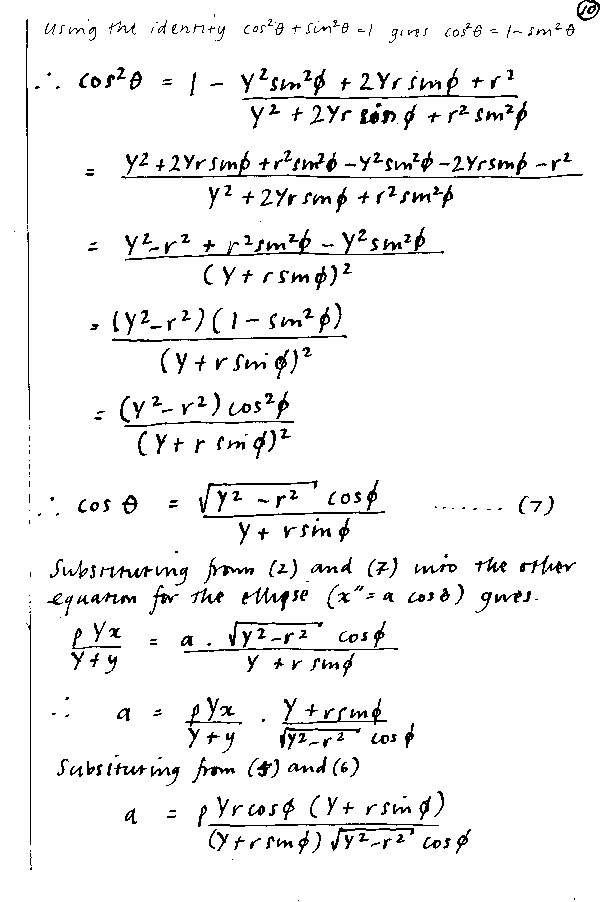 10
Using the identity cos²θ + sin²θ = 1 gives cos²θ = 1 - sin²θ
∴ cos²θ = 1 - (Y²sin²φ + 2Yr sinφ + r²) / (Y² + 2Yr sinφ + r² sin²φ)
= (Y² + 2Yr sinφ + r²sin²φ - Y²sin²φ - 2Yrsinφ - r²) / (Y² + 2Yr sinφ + r²sin²φ)
= (Y² - r² + r²sin²φ - Y²sin²φ) / (Y + r sinφ)²
= (Y² - r²)(1 - sin²φ) / (Y + r sinφ)²
= (Y² - r²) cos²φ / (Y + r sinφ)²
∴ cos θ = √(Y² - r²) cosφ / (Y + r sinφ) ....... (7)
Substituting from (2) and (7) into the other
equation for the ellipse (x" = a cosθ) gives.
ρYx / (Y + y) = a . √(Y² - r²) cosφ / (Y + r sinφ)
∴ a = ρYx / (Y + y) . (Y + r sinφ) / (√(Y² - r²) cosφ)
Substituting from (5) and (6)
a = ρYr cosφ (Y + r sinφ) / ((Y + r sinφ) √(Y² - r²) cosφ)